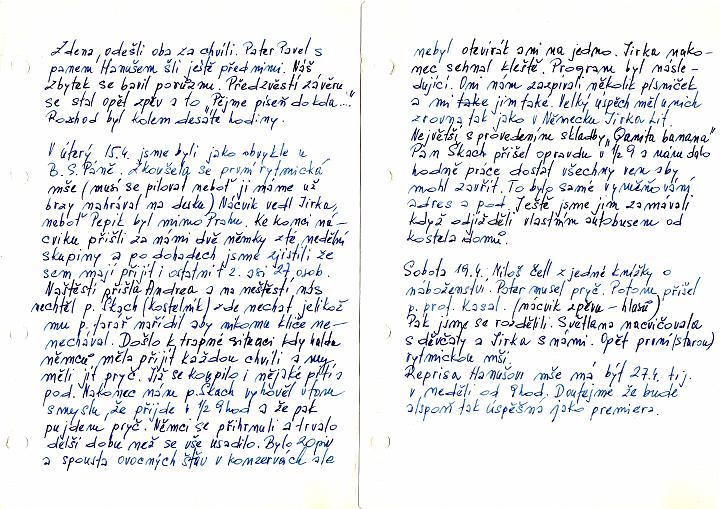 Zdena, odešli oba za chvíli. Pater Pavel s
panem Hanušem šli ještě před nimi. Náš
zbytek se bavil povízmu. Předzvěstí závěru
se stal opět zpěv a to "Pějme píseň dokola...."
Rozhod byl kolem desáté hodiny.
V úterý 15.4. jsme byli jako obvykle u
B.S.Páně. Zkoušela se první rytmická
mše (musí se pilovat neboť ji máme už
brzy nahrávat na desku) Nácvik vedl Jirka,
neboť Pepík byl mimo Prahu. Ke konci ná-
cviku přišli za námi dvě němky z té nedělní
skupiny a po dohadech jsme zjistili že
sem mají přijít i ostatní t.z. asi 27 osob.
Naštěstí přišla Andrea a na neštěstí nás
nechtěl p. Škach (kostelník) zde nechat jelikož
mu p. farář nařídil aby nikomu klíče ne-
nechával. Došlo k trapné situaci kdy halda
němců měla přijít každou chvíli a my
měli jít pryč. Již se koupilo i nějaké pití a
pod. Nakonec nám p. Škach vyhověl v tom
smyslu, že přijde v 1/2 9 hod a že pak
pujdem pryč. Němci se přihrnuli a trvalo
delší dobu než se vše usadilo. Bylo 20 piv
a spousta ovocných šťáv v konzervách ale
nebyl otevírák ani na jedno. Jirka nako-
nec sehnal kleště. Program byl násle-
dující. Oni nám zazpívali několik písniček
a mi take jim take. Velký úspěch měl u nich
zrovna tak jako v Německu Jirka Lit.
Největší s provedením skladby "Qanita banana"
Pan Škach přišel opravdu v 1/2 9 a nám dalo
hodně práce dostat všechny ven aby
mohl zavřít. To bylo samé vyměňování
adres a pod. Ještě jsme jim zamávali
když odjížděli vlastním autobusem od
kostela domů.
Sobota 19.4. Miloš četl z jedné knížky o
náboženství. Pater musel pryč. Potom přišel
p. prof. Kasal. (nácvik zpěvu - hlasů)
Pak jsme se rozdělili. Světlana nacvičovala
s děvčaty a Jirka s námi. Opět první (starou)
rytmickou mši.
Reprisa Hanušovi mše má být 27.4. t.j.
v neděli od 9 hod. Doufejme že bude
alspoň tak úspěšná jako premiera.